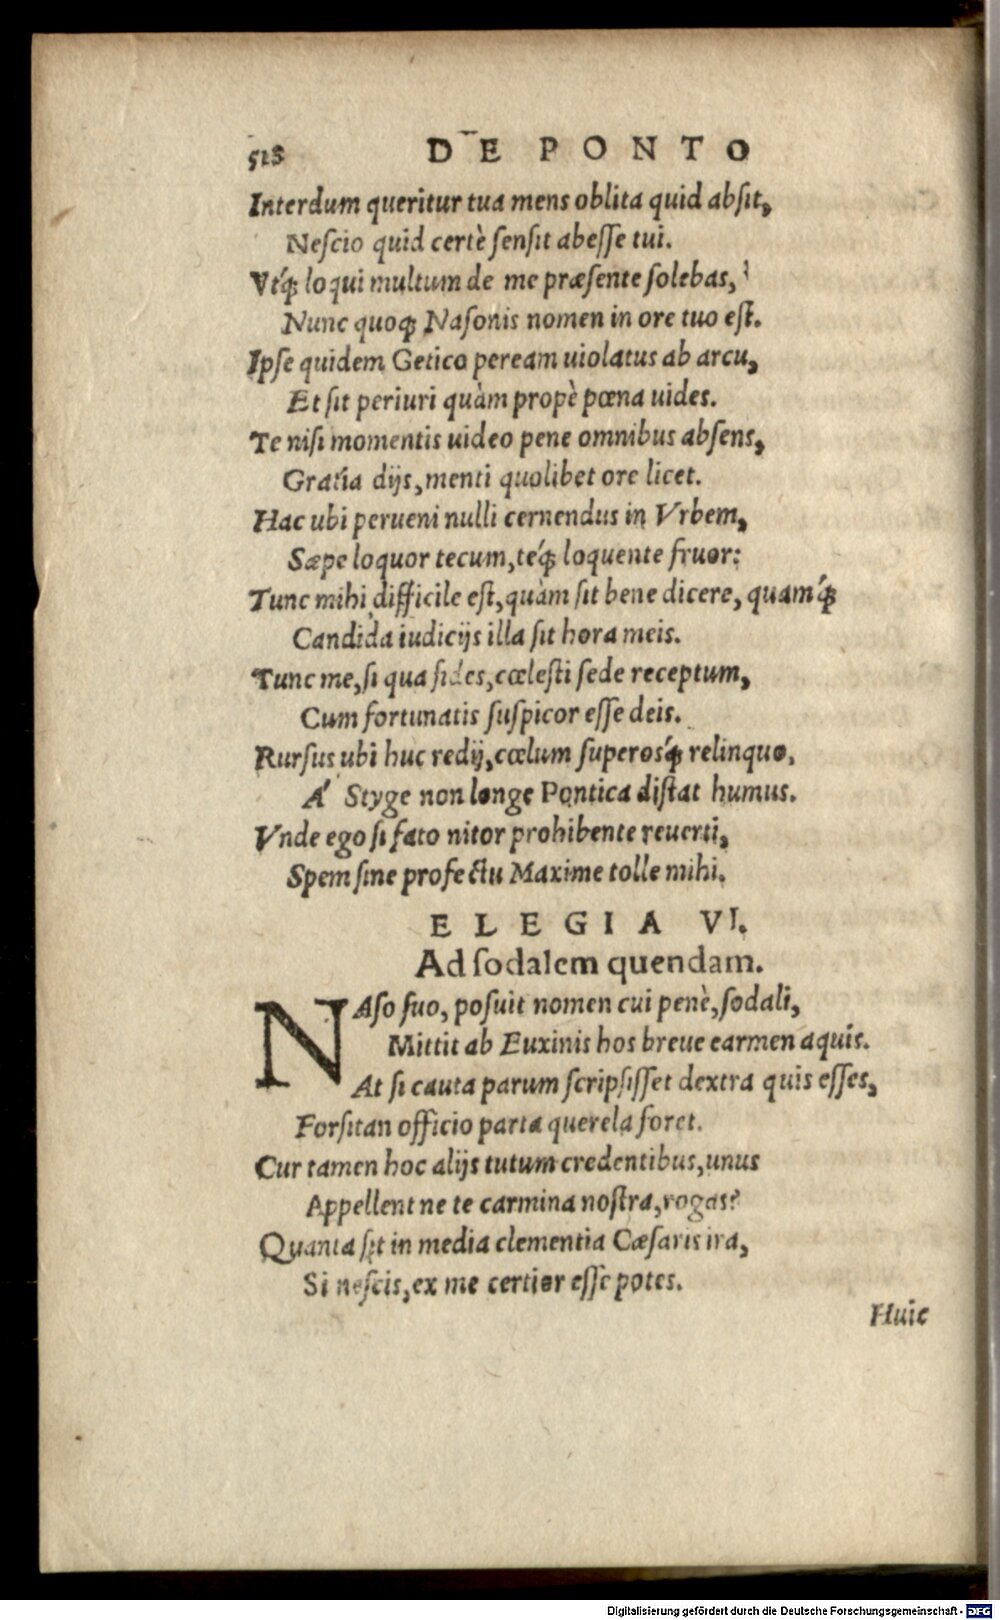 518 DE PONTO
Interdum queritur tua mens oblita quid absit,
Nescio quid certè sensit abesse tui.
Vtq́; loqui multum de me præsente solebas,
Nunc quoq; Nasonis nomen in ore tuo est.
Ipse quidem Getico peream uiolatus ab arcu,
Et sit periuri quàm propè pœna uides.
Te nisi momentis uideo pene omnibus absens,
Gratia dijs, menti quolibet ore licet.
Hac ubi perueni nulli cernendus in Vrbem,
Sæpe loquor tecum, teq́; loquente fruor:
Tunc mihi difficile est, quàm sit bene dicere, quamq́;
Candida iudicijs illa sit hora meis.
Tunc me, si qua fides, cœlesti sede receptum,
Cum fortunatis suspicor esse deis.
Rursus ubi huc redij, cœlum superosq́; relinquo,
A' Styge non longe Pontica distat humus.
Vnde ego si fato nitor prohibente reuerti,
Spem sine profectu Maxime tolle mihi.
ELEGIA VI.
Ad sodalem quendam.
NAso suo, posuit nomen cui penè, sodali,
Mittit ab Euxinis hos breue earmen aquis.
At si cauta parum scripsisset dextra quis esses,
Forsitan officio parta querela foret.
Cur tamen hoc alijs tutum credentibus, unus
Appellent ne te carmina nostra, rogas?
Quanta sit in media clementia Cæsaris ira,
Si nescis, ex me certior esse potes.
Huic
Digitalisierung gefördert durch die Deutsche Forschungsgemeinschaft - DFG